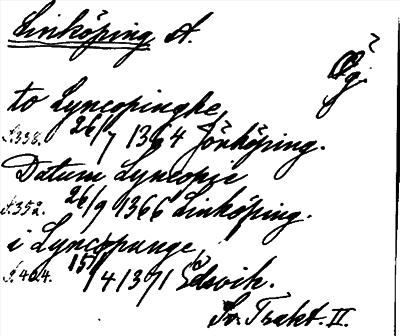 Linköping A.
Ög.
to Lyncopinghe,
s. 338. 26/7 1364 Jönköping.
Datum Lyncopie
s. 352. 26/9 1366 Linköping.
i Lyncopunge,
s. 404. 15/4 1371 Edsvik.
Sv. Trakt. II.